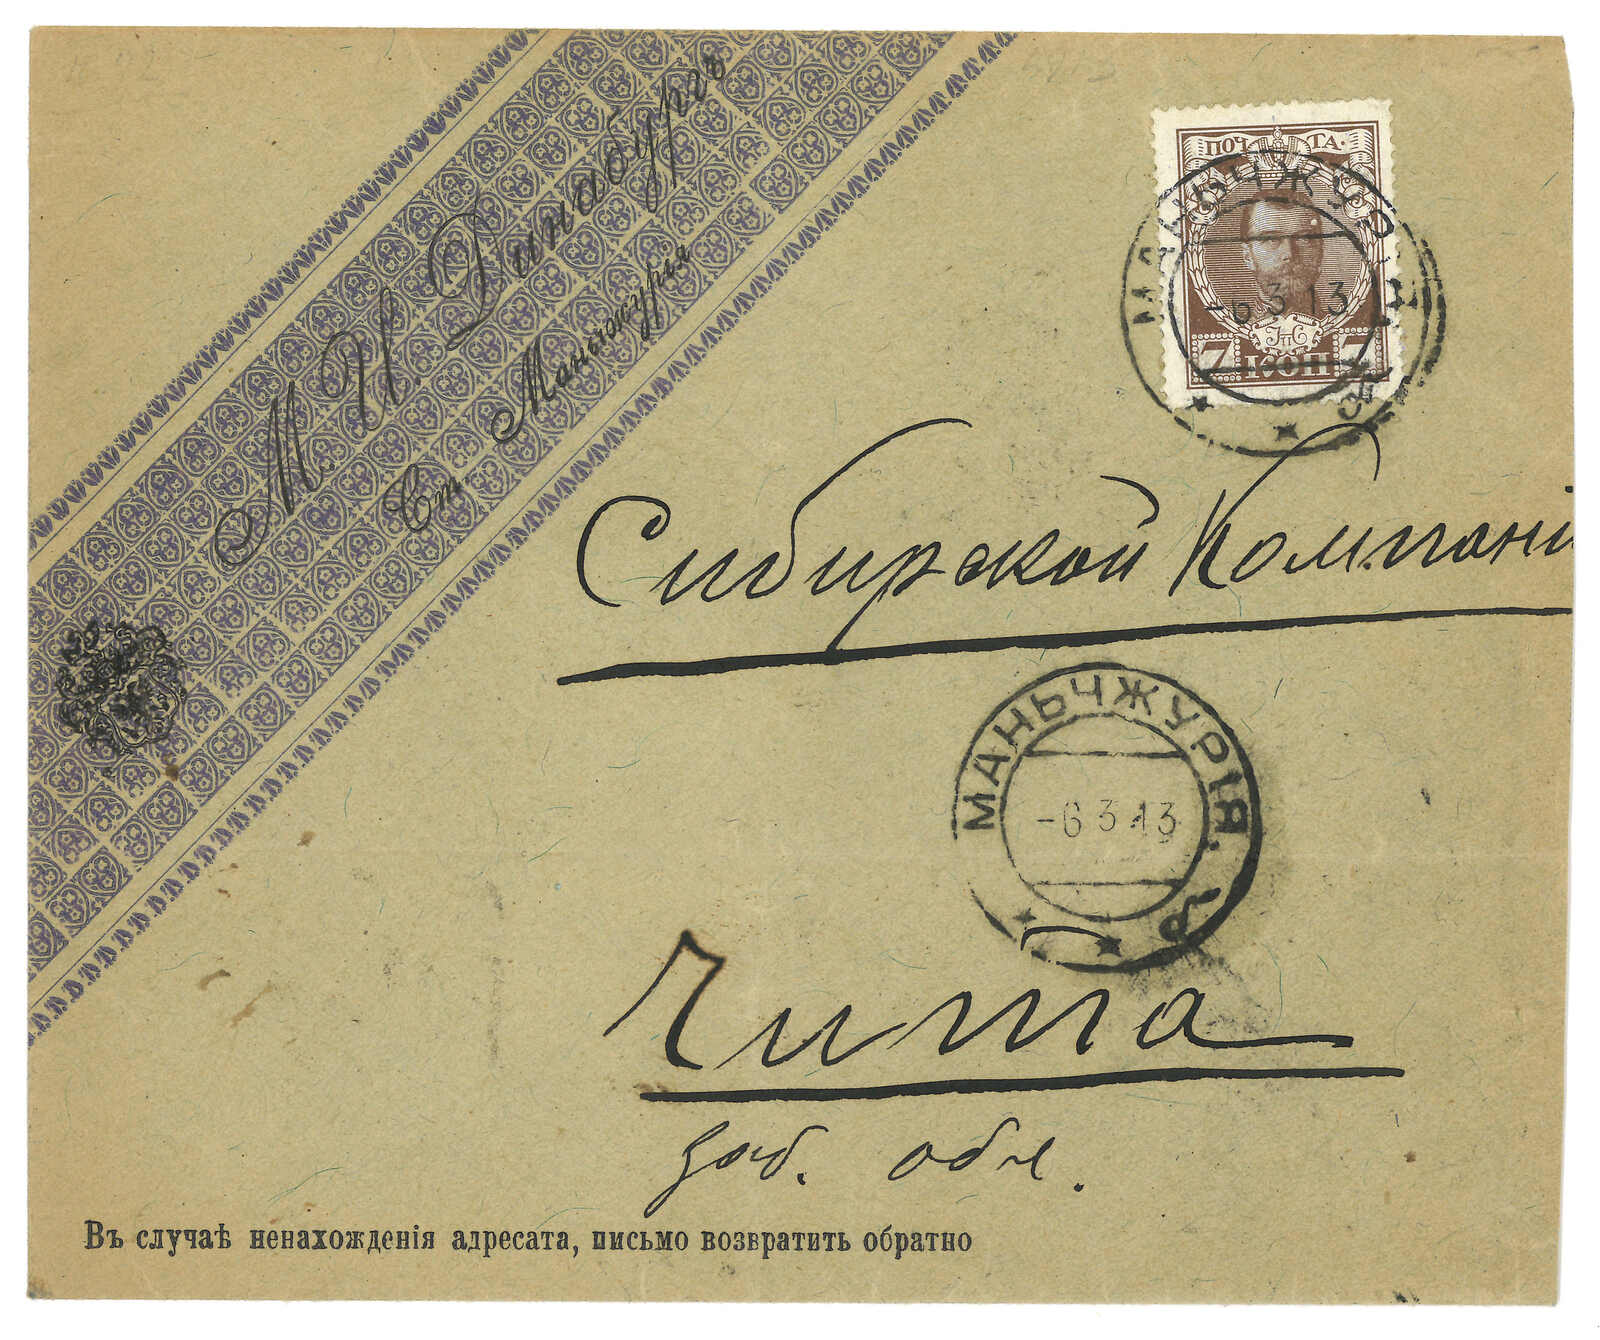 М. И. Динабургъ
Ст. Маньчжурія
ПОЧТА.
7 КОП 7
МАНЬЧЖУРІЯ
-6 3 13
Сибирской Компані
МАНЬЧЖУРІЯ.
-6 3 13
Чита
Заб. обл.
Въ случаѣ ненахожденія адресата, письмо возвратить обратно